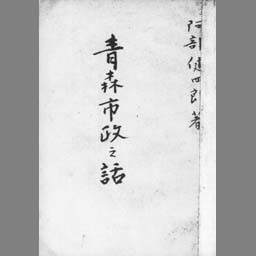 阿部健四郎著
青森市政之話